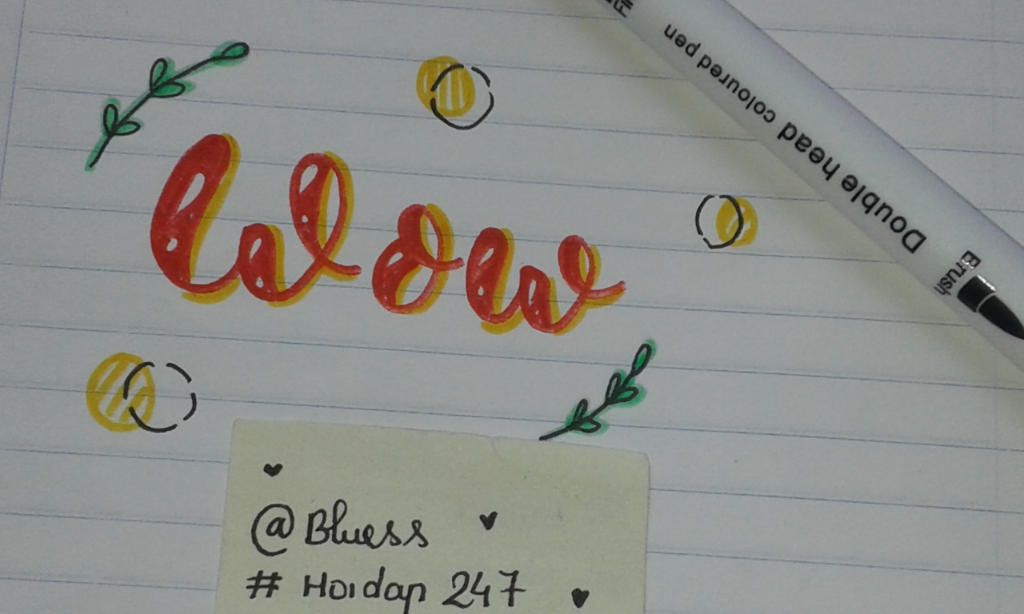 Wow
Double head coloured pen
Brush
@Bluess
# Hoidap 247